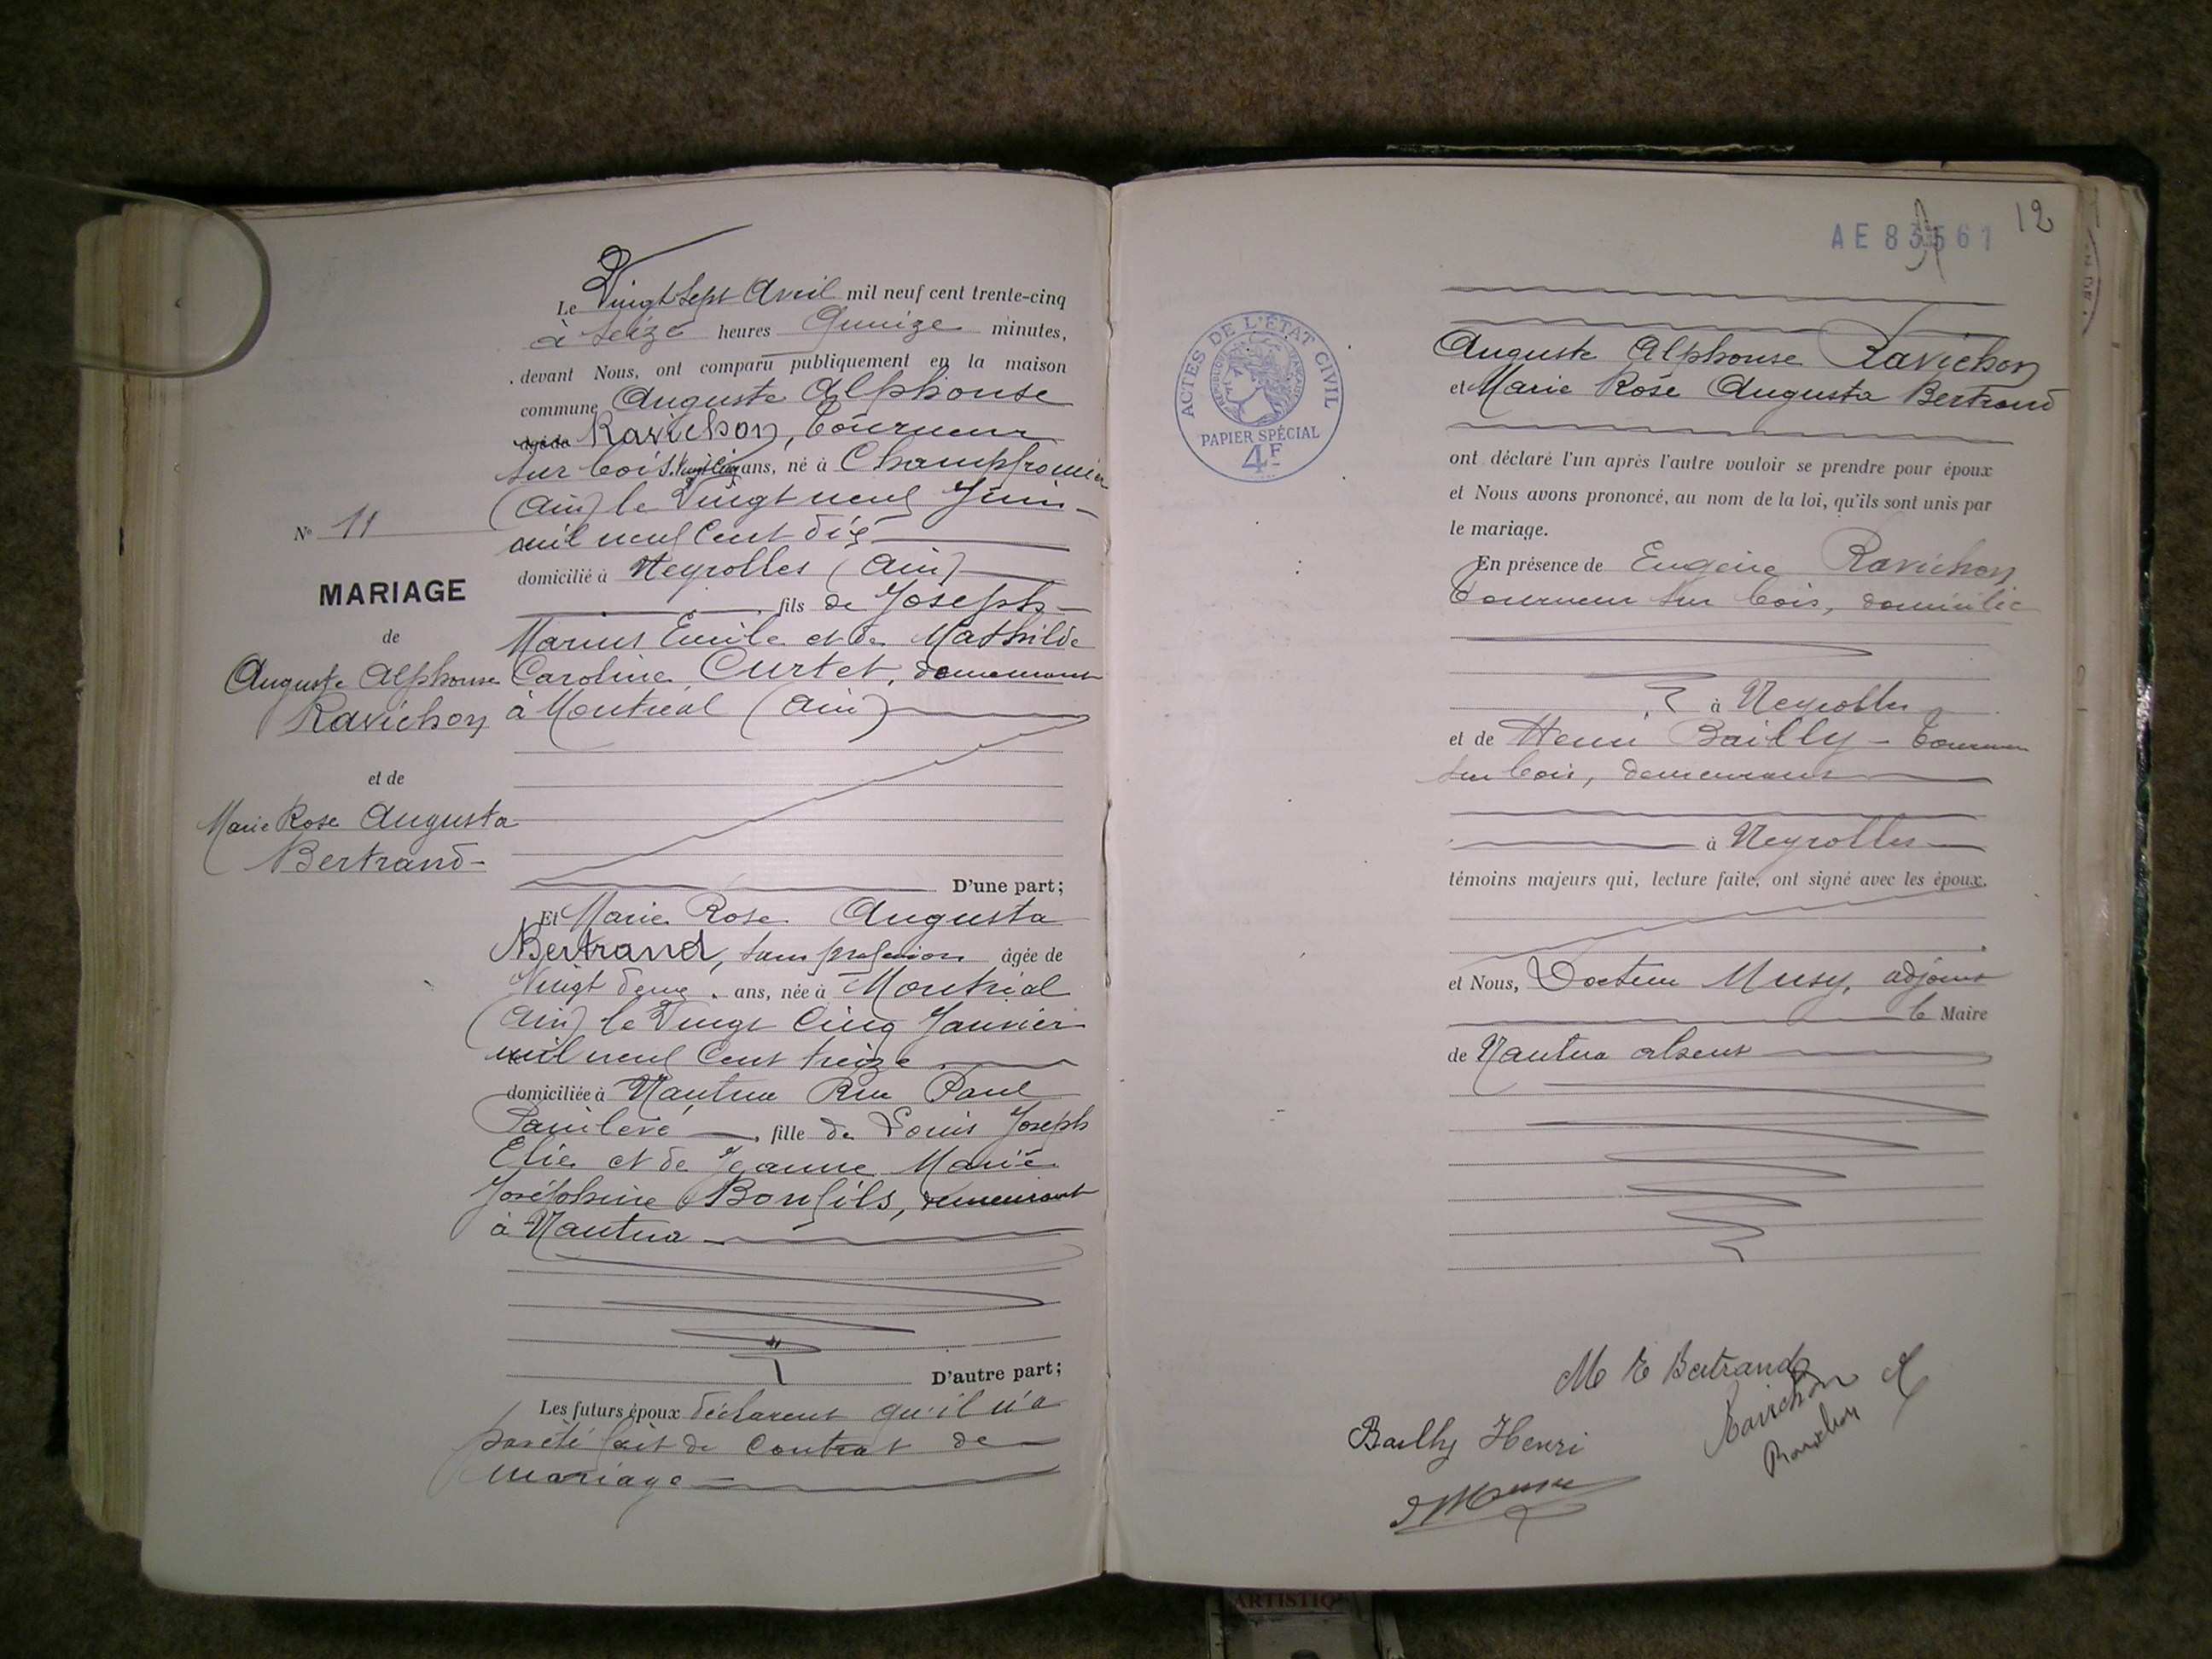 Le Vingt Sept Avril mil neuf cent trente-cinq
à Seize heures Quinze minutes,
devant Nous, ont comparu publiquement en la maison
commune Auguste Alphonse
âgé de Ravichon, Tourneur
sur bois, Vingt Cinq ans, né à Champfromier
(Ain) le Vingt neuf Juin
mil neuf Cent dix
domicilié à Neyrolles (Ain)
, fils de Joseph
Marius Emile et de Mathilde
Caroline Curtet, demeurant
à Montréal (Ain)
D'une part;
Et Marie Rose Augusta
Bertrand, sans profession âgée de
Vingt deux ans, née à Montréal
(Ain) le Vingt Cinq Janvier
mil neuf Cent treize
domiciliée à Nantua Rue Paul
Painlevé, fille de Louis Joseph
Elie et de Jeanne Marie
Joséphine Bonfils, demeurant
à Nantua
D'autre part;
Les futurs époux déclarent qu'il n'a
pas été fait de Contrat de
mariage
No 11
MARIAGE
de
Auguste Alphonse
Ravichon
et de
Marie Rose Augusta
Bertrand
12
ACTES DE L'ÉTAT CIVIL
PAPIER SPÉCIAL
4F
Auguste Alphonse Ravichon
et Marie Rose Augusta Bertrand
ont déclaré l'un après l'autre vouloir se prendre pour époux
et Nous avons prononcé, au nom de la loi, qu'ils sont unis par
le mariage.
En présence de Eugène Ravichon
Tourneur sur bois, domicilié
à Neyrolles
et de Henri Bailly - Tourneur
sur bois, demeurant
à Neyrolles
témoins majeurs qui, lecture faite, ont signé avec les époux.
et Nous, Docteur Musy, adjoint
le Maire
de Nantua absent
M R Bertrand
Ravichon A
Ravichon
Bailly Henri
ARTISTIQ